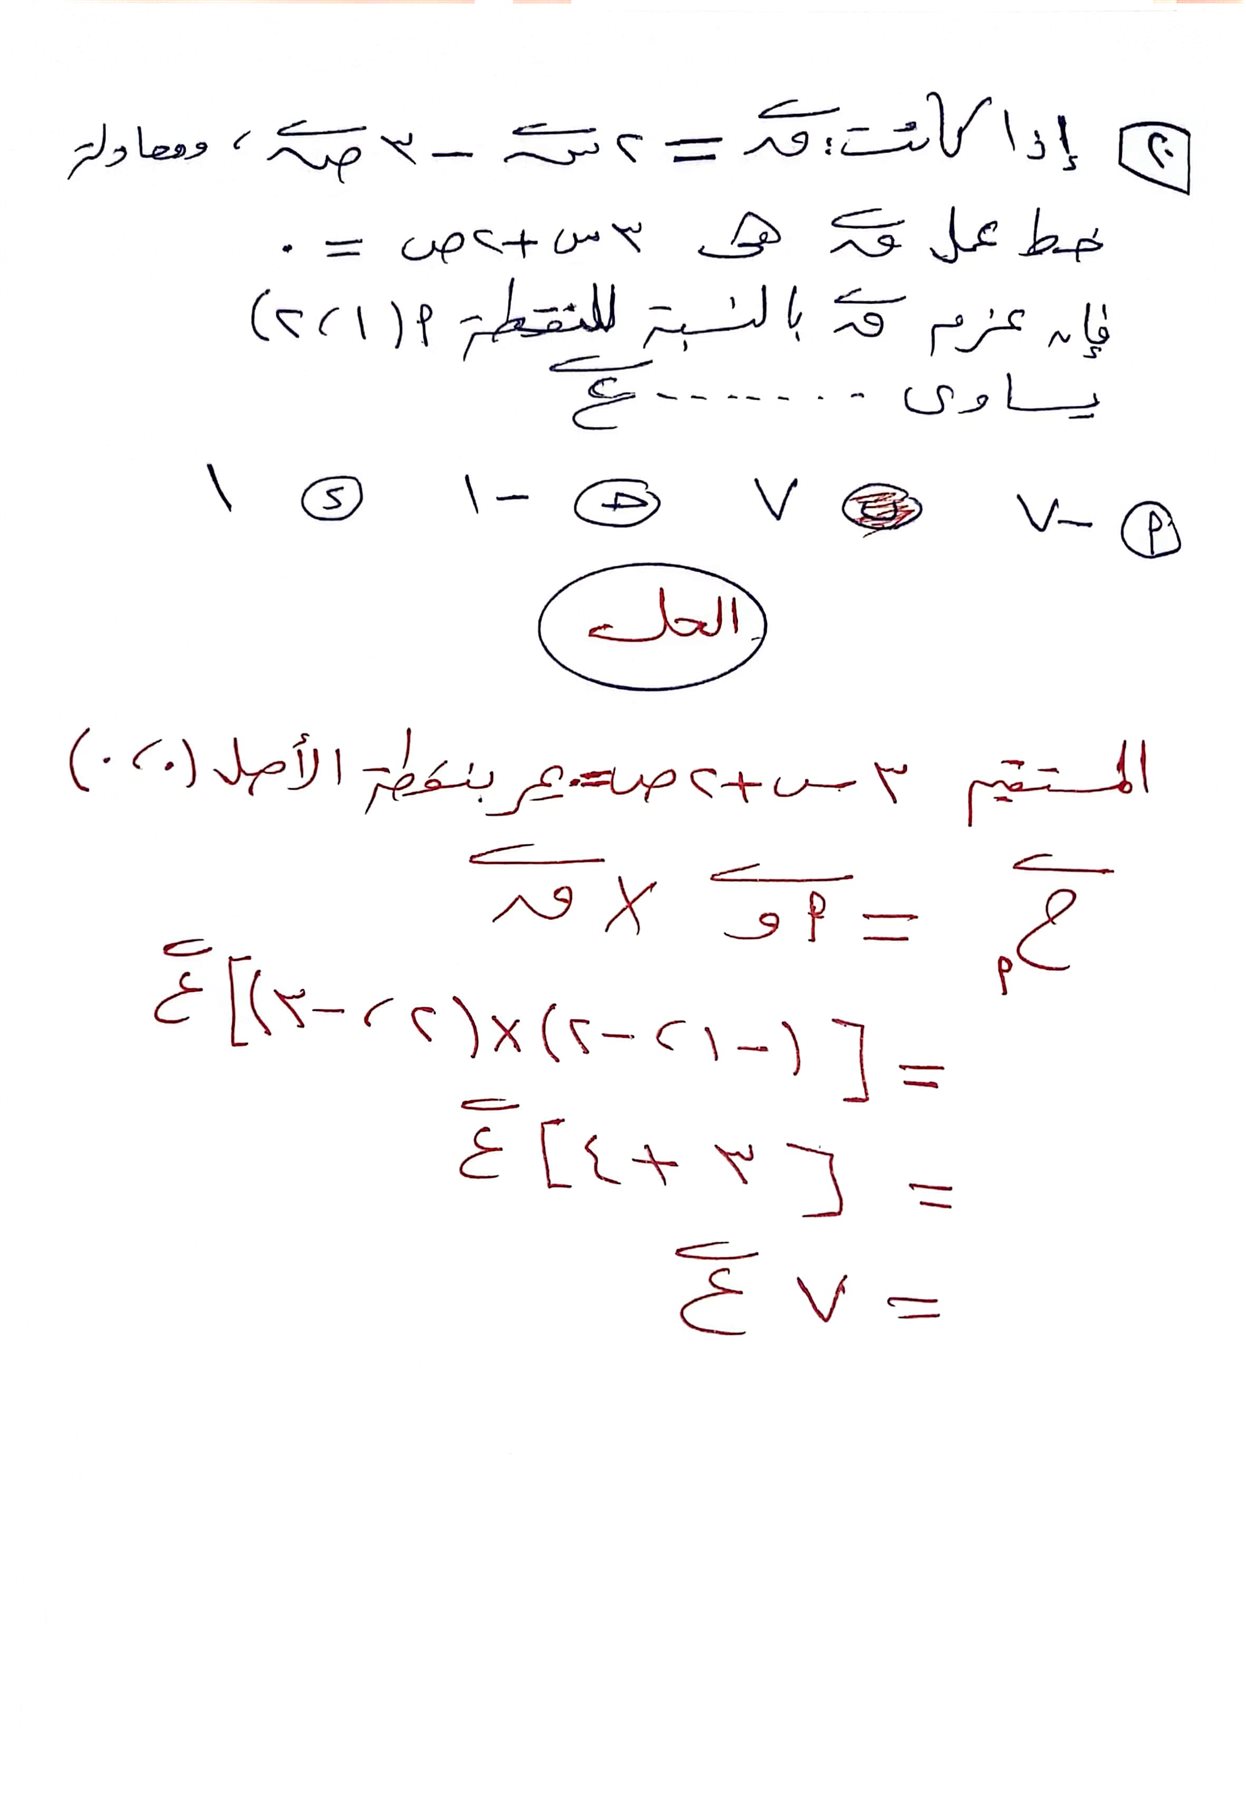 ٢٠ إذا كانت: ق = ٢ س − ٣ ص ، ومعادلة
خط عمل ق هى ٣ س + ٢ ص = ٠
فإن عزم ق بالنسبة للنقطة P (١، ٢)
يساوى ........ ع
P −٧ ب ٧ حـ −١ د ١
الحل
المستقيم ٣ س + ٢ ص = ٠ يمر بنقطة الأصل (٠، ٠)
ج P = P و × ق
= [(−١، −٢) × (٢، −٣)] ع
= [٣ + ٤] ع
= ٧ ع